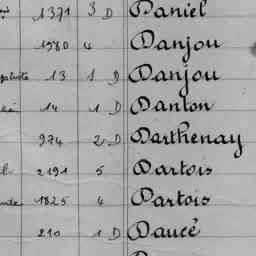 1371 3 D Daniel
1980 4 Danjou
13 1 D Danjou
14 1 D Danton
974 2 D Darthenay
2191 5 Dartois
1825 4 Dartois
210 1 D Daucé